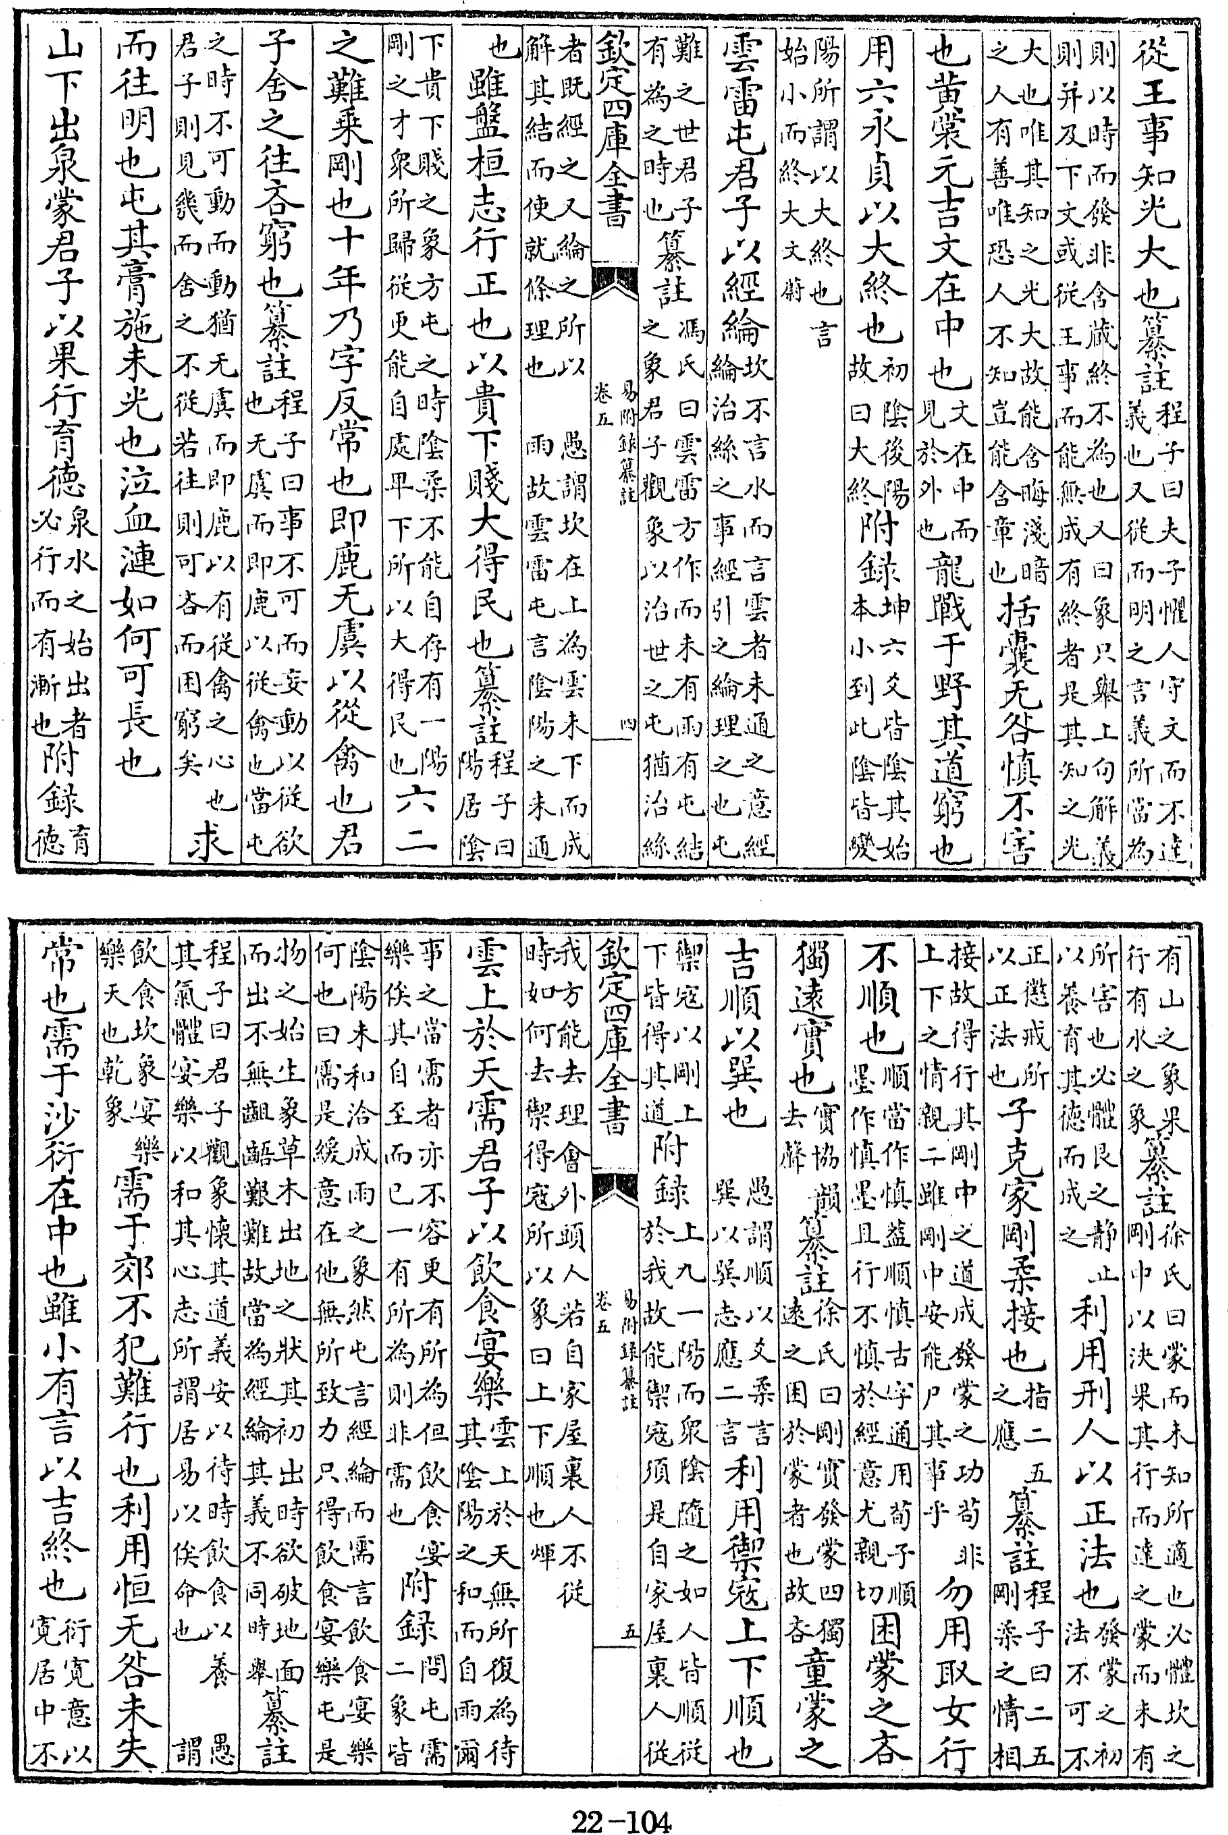 從王事知光大也纂註程子曰夫子懼人守文而不達義也又從而明之言義所當為
則以時而發非含藏終不為也又曰象只舉上句解義則并及下文或從王事而能無成有終者是其知之光
大也唯其知之光大故能含晦淺暗之人有善唯恐人不知豈能含章也括囊无咎慎不害
也黃裳元吉文在中也文在中而見於外也龍戰于野其道窮也
用六永貞以大終也初陰後陽故曰大終附錄坤六爻皆陰其始本小到此陰皆變
陽所謂以大終也言始小而終大文蔚
雲雷屯君子以經綸坎不言水而言雲者未通之意經綸治絲之事經引之綸理之也屯
難之世君子有為之時也纂註馮氏曰雲雷方作而未有雨有屯結之象君子觀象以治世之屯猶治絲
欽定四庫全書 易附錄纂註 卷五 四
者既經之又綸之所以解其結而使就條理也 愚謂坎在上為雲未下而成雨故雲雷屯言陰陽之未通
也 雖盤桓志行正也以貴下賤大得民也纂註程子曰陽居陰
下貴下賤之象方屯之時陰柔不能自存有一陽剛之才眾所歸從更能自處卑下所以大得民也六二
之難乘剛也十年乃字反常也即鹿无虞以從禽也君
子舍之往吝窮也纂註程子曰事不可而妄動以從欲也无虞而即鹿以從禽也當屯
之時不可動而動猶无虞而即鹿以有從禽之心也君子則見幾而舍之不從若往則可吝而困窮矣求
而往明也屯其膏施未光也泣血漣如何可長也
山下出泉蒙君子以果行育德泉水之始出者必行而有漸也附錄育德
有山之象果行有水之象纂註徐氏曰蒙而未知所適也必體坎之剛中以決果其行而達之蒙而未有
所害也必體艮之靜止以養育其德而成之利用刑人以正法也發蒙之初法不可不
正懲戒所以正法也子克家剛柔接也指二五之應纂註程子曰二五剛柔之情相
接故得行其剛中之道成發蒙之功苟非上下之情親二雖剛中安能尸其事乎勿用取女行
不順也順當作慎蓋順慎古字通用荀子順墨作慎墨且行不慎於經意尤親切困蒙之吝
獨遠實也實協韻去聲纂註徐氏曰剛實發蒙四獨遠之困於蒙者也故吝童蒙之
吉順以巽也 愚謂順以爻柔言巽以巽志應二言利用禦寇上下順也
禦寇以剛上下皆得其道附錄上九一陽而眾陰隨之如人皆順從於我故能禦寇須是自家屋裏人從
欽定四庫全書 易附錄纂註 卷五 五
我方能去理會外頭人若自家屋裏人不從時如何去禦得寇所以象曰上下順也㷇
雲上於天需君子以飲食宴樂雲上於天無所復為待其陰陽之和而自雨爾
事之當需者亦不容更有所為但飲食宴樂俟其自至而已一有所為則非需也附錄問屯需二象皆
陰陽未和洽成雨之象然屯言經綸而需言飲食宴樂何也曰需是緩意在他無所致力只得飲食宴樂屯是
物之始生象草木出地之狀其初出時欲破地面而出不無齟齬艱難故當為經綸其義不同時舉纂註
程子曰君子觀象懷其道義安以待時飲食以養其氣體宴樂以和其心志所謂居易以俟命也 愚謂
飲食坎象宴樂樂天也乾象需于郊不犯難行也利用恒无咎未失
常也需于沙衍在中也雖小有言以吉終也衍寬意以寬居中不
22-104